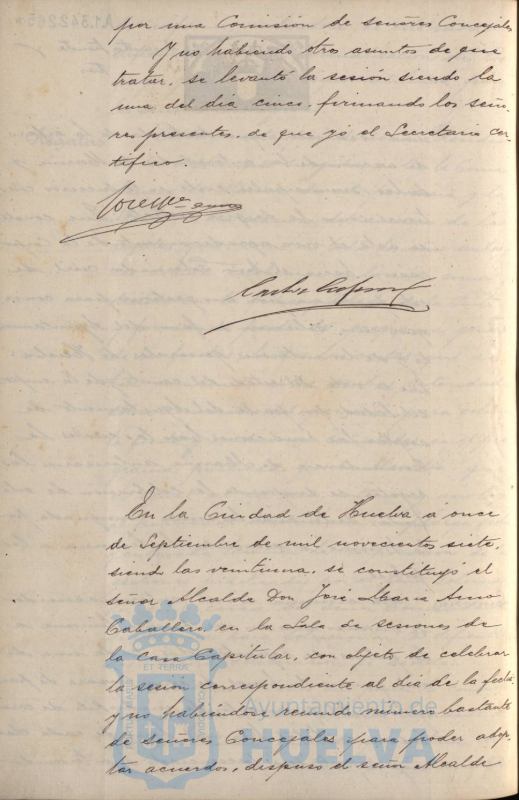 por una Comisión de señores Concejales
Y no habiendo otros asuntos de que
tratar, se levantó la sesión siendo la
una del dia cinco, firmando los seño-
res presentes, de que yó el Secretario cer-
tifico.
José Mª
En la Ciudad de Huelva á once
de Septiembre de mil novecientos siete,
siendo las veintiuna, se constituyó el
señor Alcalde Don José Maria Amo
Caballero, en la Sala de sesiones de
la Casa Capitular, con objeto de celebrar
la sesión correspondiente al dia de la fecha
y no habiéndose reunido número bastante
de señores Concejales para poder adop-
tar acuerdos, dispuso el señor Alcalde
ET TERRÆ
Ayuntamiento de
HUELVA